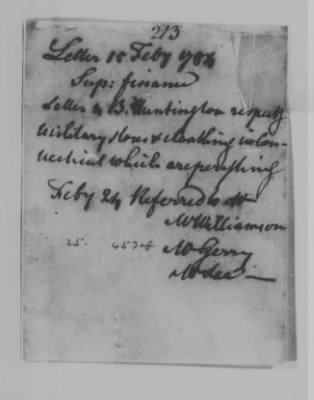 213
Letter 18 Feby 1784
Sup: finance
Letter of B. Huntington respectg
military stores & cloathing in Con-
necticut which are perishing
Feby 24 Referred to
Mr Williamson
25. 457-8 Mr Gerry
Mr Lee